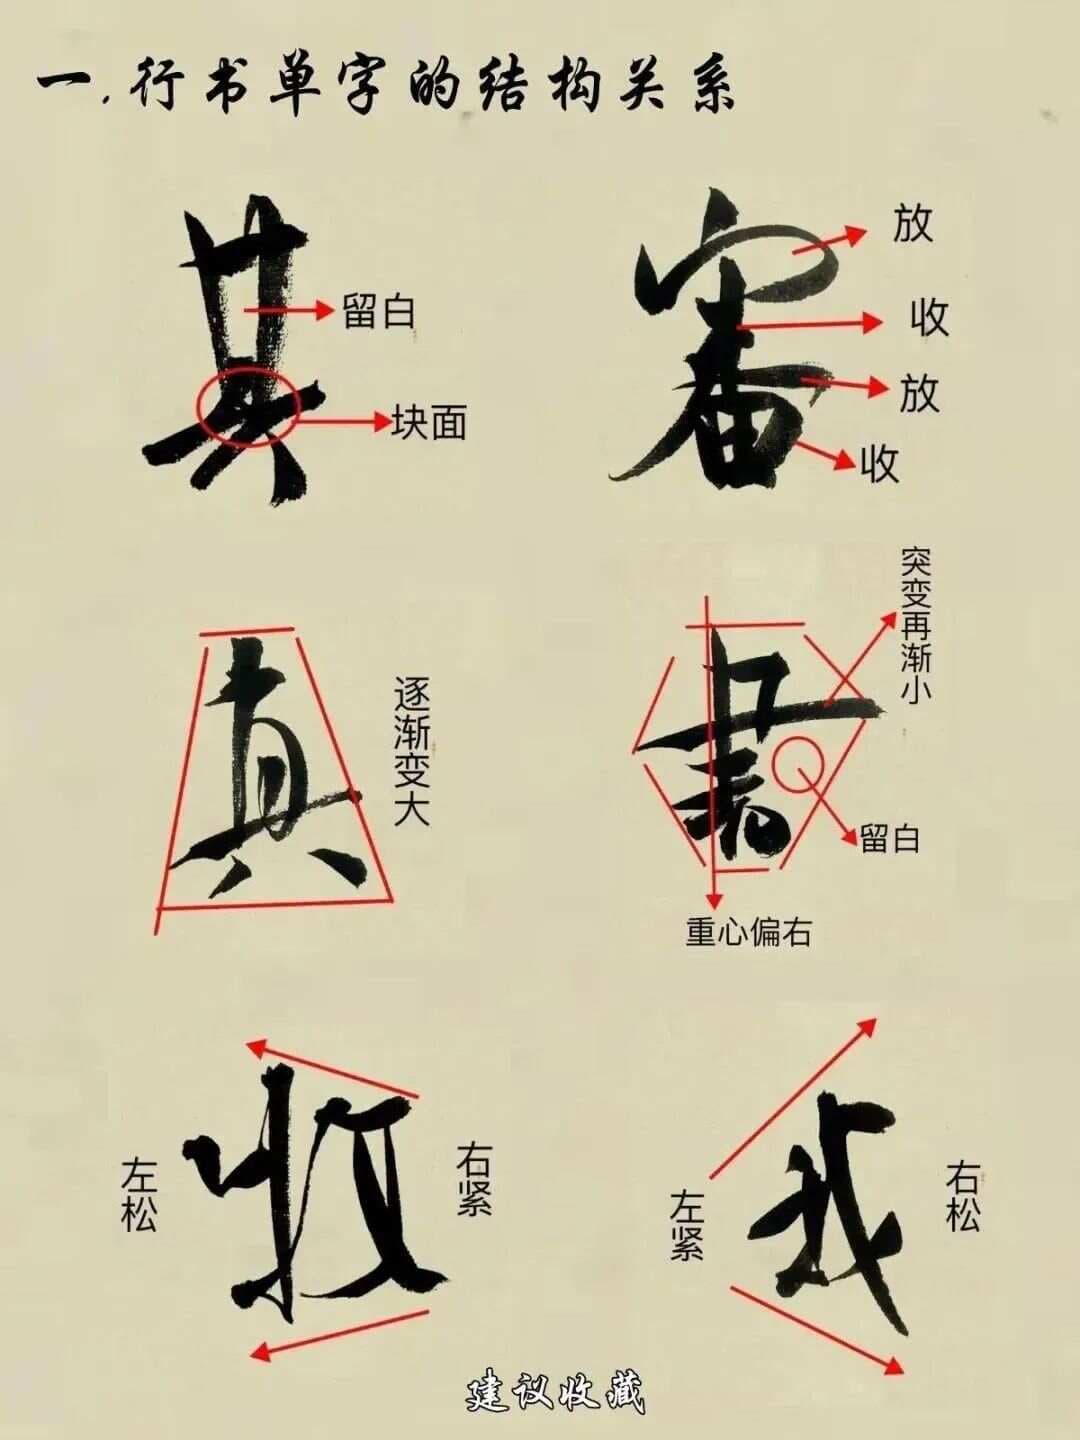 一.行书单字的结构关系
其
留白
块面
審
放
收
放
收
真
逐渐变大
書
突变再渐小
留白
重心偏右
左松
右紧
左紧
我
右松
建议收藏